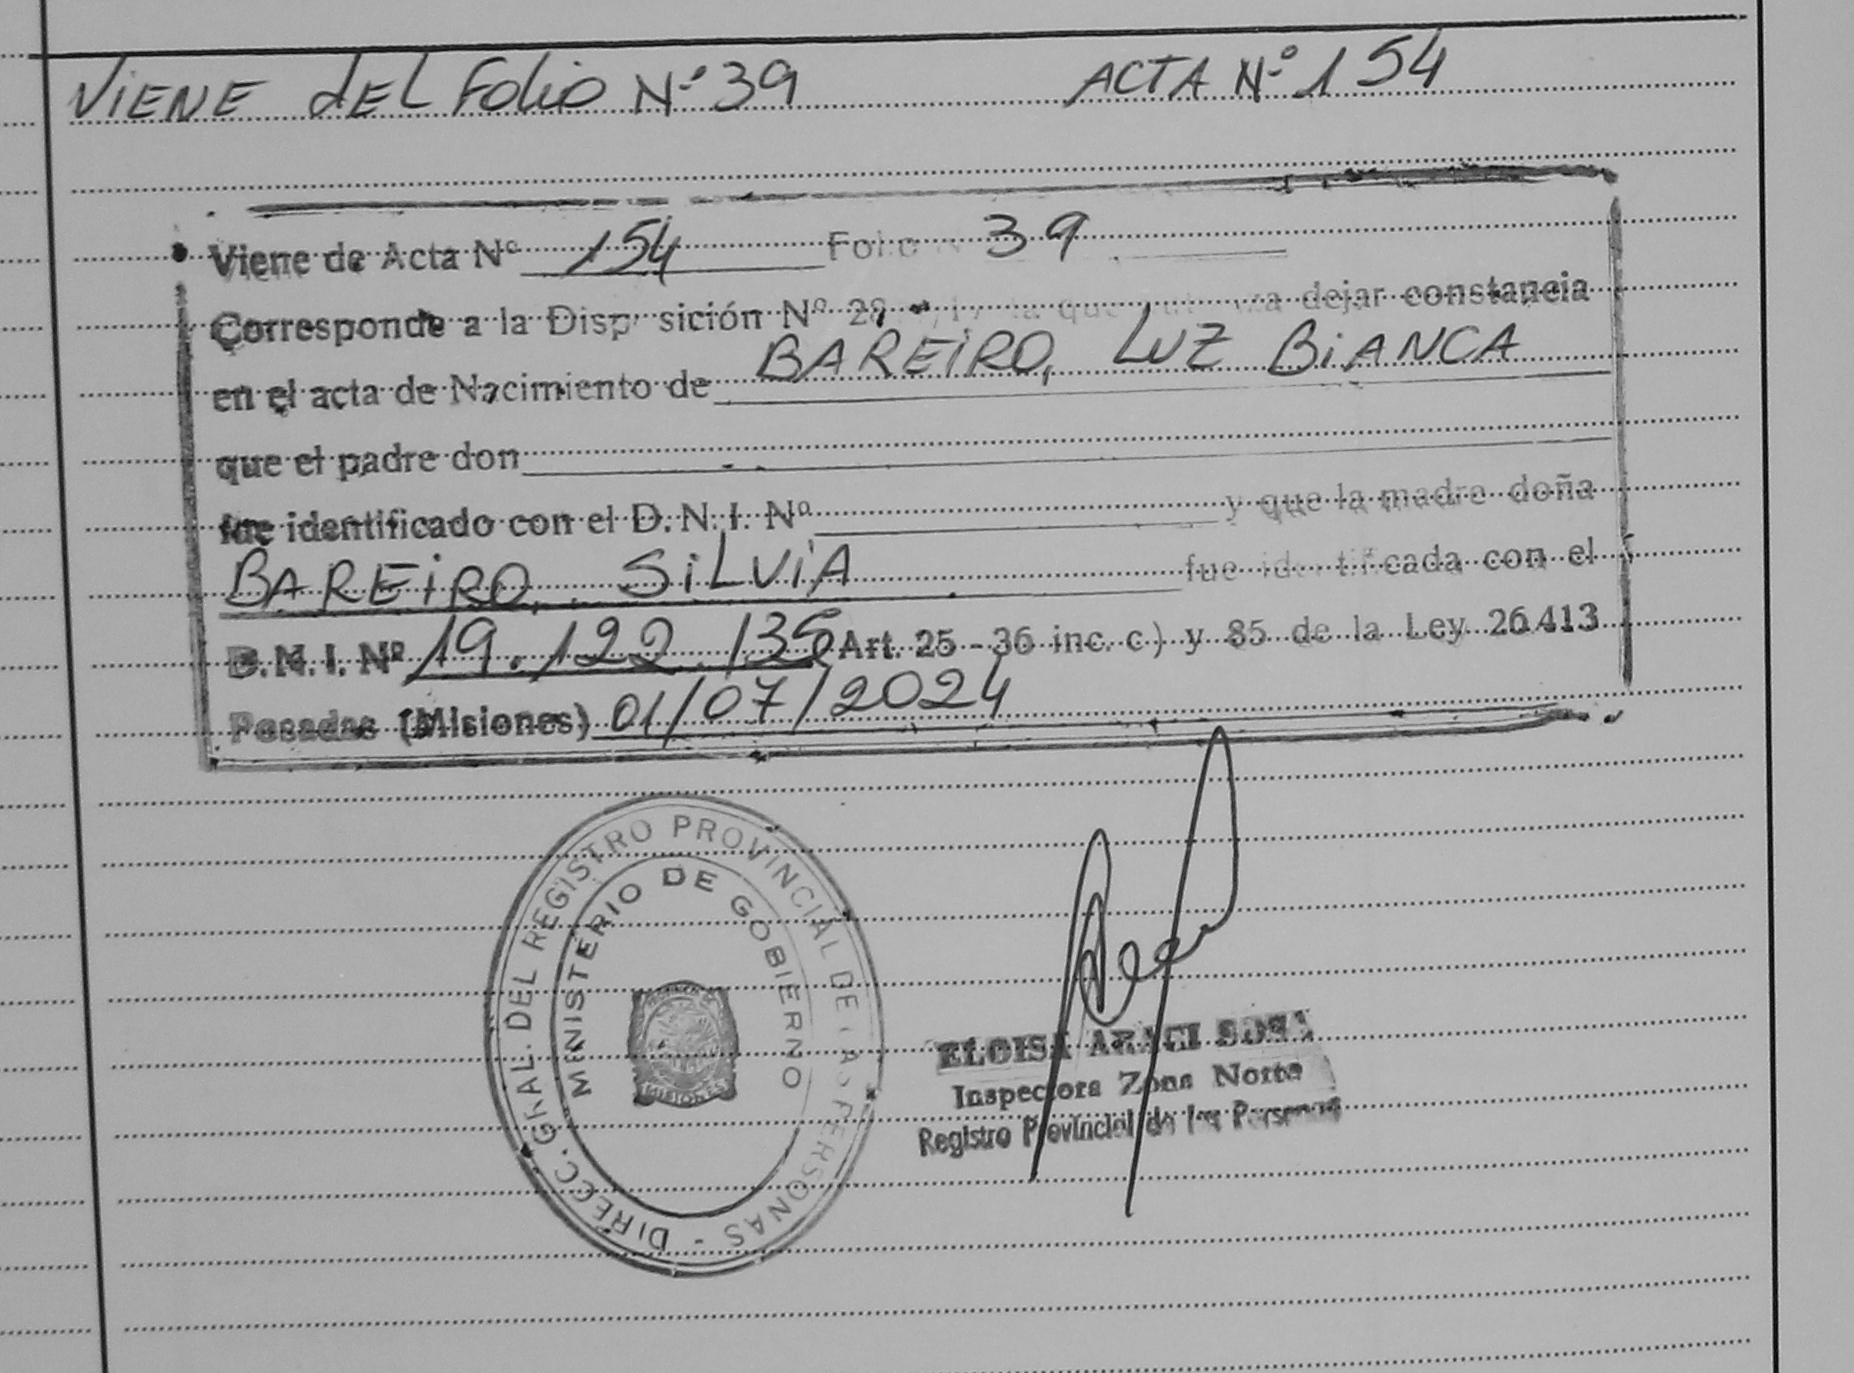 VIENE dEL Folio Nº 39 ACTA Nº 154
Viene de Acta Nº 154 Folio 39
Corresponde a la Disposición Nº 28 la que dejar constancia
en el acta de Nacimiento de BAREIRO, LUZ BIANCA
que el padre don
fue identificado con el D.N.I. Nº y que la madre doña
BAREIRO, SILVIA fue identificada con el
D.N.I. Nº 19.122.135 Art. 25 - 36 inc. c) y 85 de la Ley 26.413
Posadas (Misiones) 01/07/2024
DIRECC. GRAL. DEL REGISTRO PROVINCIAL DE LAS PERSONAS -
MINISTERIO DE GOBIERNO
PROVINCIA DE
MISIONES
ELOISA ARACI SOSA
Inspectora Zona Norte
Registro Provincial de las Personas